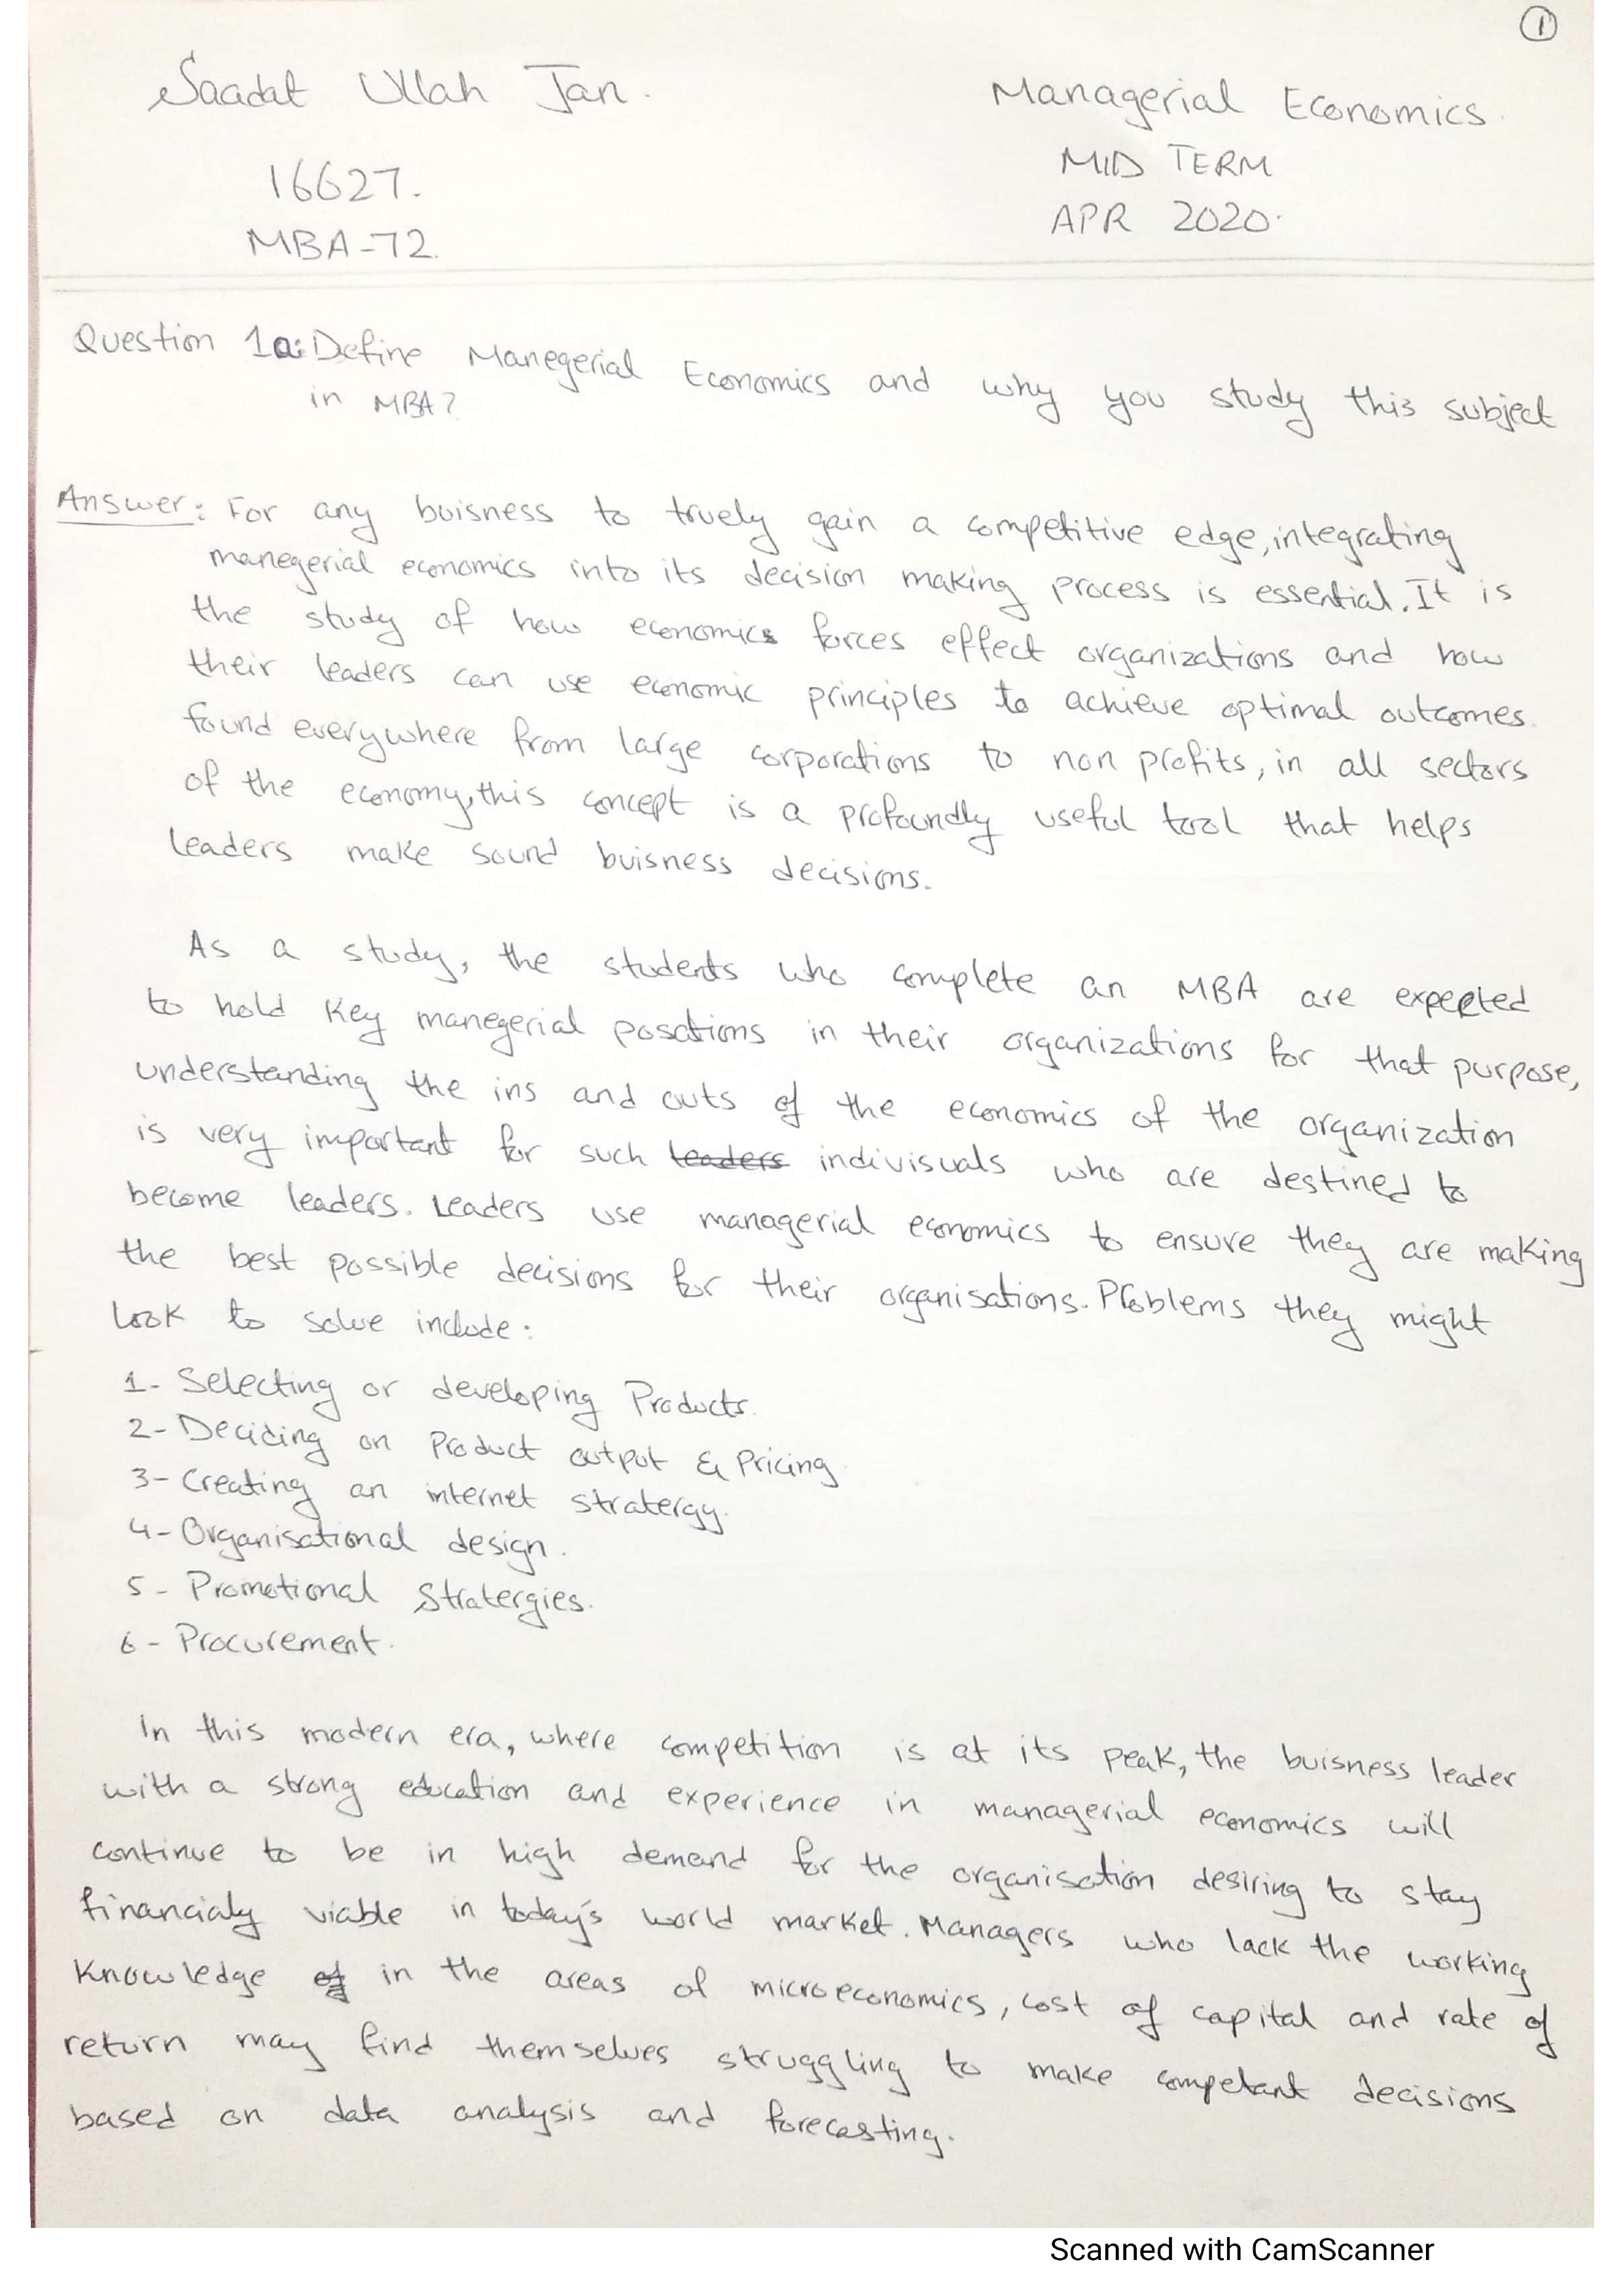 1
Saadat Ullah Jan.
Managerial Economics.
16627.
MID TERM
MBA-72.
APR 2020.
Question 1a: Define Manegerial Economics and why you study this subject
in MBA?
Answer: For any buisness to truely gain a competitive edge, integrating
manegerial economics into its decision making process is essential. It is
the study of how economics forces effect organizations and how
their leaders can use economic principles to achieve optimal outcomes.
found everywhere from large corporations to non profits, in all sectors
of the economy, this concept is a profoundly useful tool that helps
leaders make sound buisness decisions.
As a study, the students who complete an MBA are expected
to hold key manegerial posotions in their organizations for that purpose,
understanding the ins and outs of the economics of the organization
is very important for such leaders indivisuals who are destined to
become leaders. Leaders use managerial economics to ensure they are making
the best possible decisions for their organisations. Problems they might
look to solve include:
1- Selecting or developing Products.
2- Deciding on Product output & Pricing
3- Creating an internet stratergy.
4- Organisational design.
5- Promotional Stratergies.
6- Procurement.
In this modern era, where competition is at its peak, the buisness leader
with a strong education and experience in managerial economics will
continue to be in high demand for the organisation desiring to stay
financialy viable in today's world market. Managers who lack the working
knowledge of in the areas of microeconomics, cost of capital and rate of
return may find themselves struggling to make competant decisions
based on data analysis and forecasting.
Scanned with CamScanner